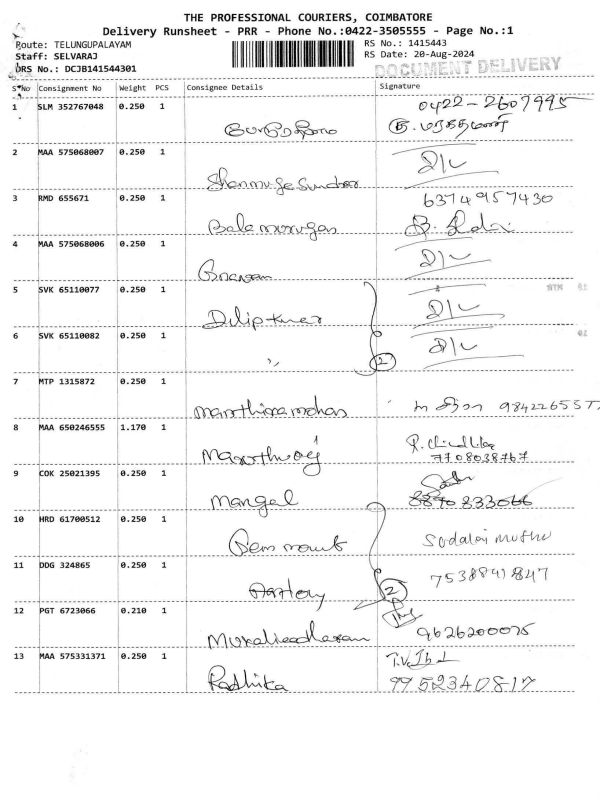 THE PROFESSIONAL COURIERS, COIMBATORE
Delivery Runsheet - PRR - Phone No.:0422-3505555 - Page No.:1
Route: TELUNGUPALAYAM
RS No.: 1415443
Staff: SELVARAJ
RS Date: 20-Aug-2024
DRS No.: DCJB141544301
DOCUMENT DELIVERY
S No Consignment No Weight PCS Consignee Details Signature
1 SLM 352767048 0.250 1 0422-2607995
2 MAA 575068007 0.250 1 D/L
3 RMD 655671 0.250 1 6374957430
Balamurugan
4 MAA 575068006 0.250 1 D/L
5 SVK 65110077 0.250 1 D/L
Dilipkumar
6 SVK 65110082 0.250 1 D/L
,, 2
7 MTP 1315872 0.250 1
8 MAA 650246555 1.170 1
Maruthuraj 7708038767
9 COK 25021395 0.250 1
Mangal 8890833066
10 HRD 61700512 0.250 1
Sudalai muthu
11 DDG 324865 0.250 1 7538841847
2
12 PGT 6723066 0.210 1
Muralidharan 9626200075
13 MAA 575331371 0.250 1
Radhika 9952340817